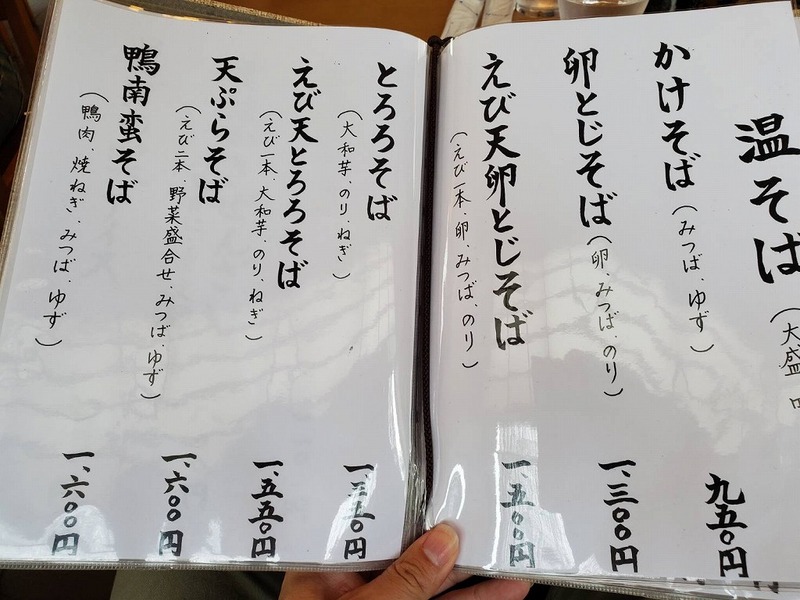 温そば
(大盛
かけそば
(みつば、ゆず)
九五〇円
卵とじそば
(卵、みつば、のり)
一、三〇〇円
えび天卵とじそば
(えび一本、卵、みつば、のり)
一、五〇〇円
とろろそば
(大和芋、のり、ねぎ)
一、三五〇円
えび天とろろそば
(えび一本、大和芋、のり、ねぎ)
一、五五〇円
天ぷらそば
(えび二本、野菜盛合せ、みつば、ゆず)
一、六〇〇円
鴨南蛮そば
(鴨肉、焼ねぎ、みつば、ゆず)
一、六〇〇円